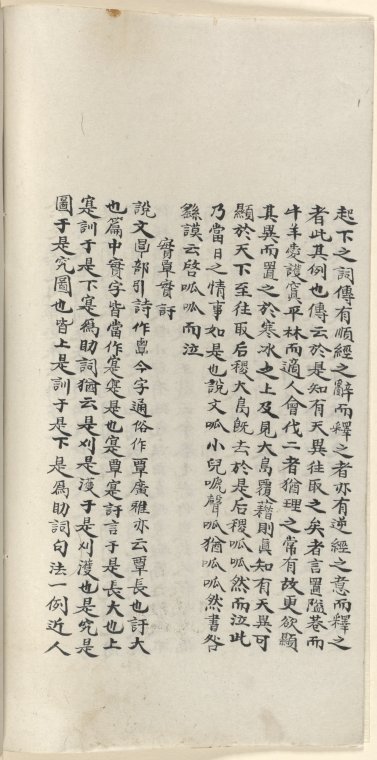 起下之詞傳有順經之辭而釋之者亦有逆經之意而釋之
者此其例也傳云於是知有天異往取之矣者言置隘巷而
牛羊愛護寘平林而適人會伐二者猶理之常有故更欲顯
其異而置之於寒冰之上及見大鳥覆藉則真知有天異可
顯於天下至往取后稷大鳥既去於是后稷呱呱然而泣此
乃當日之情事如是也說文呱小兒嗁聲呱猶呱呱然書咎
繇謨云啓呱呱而泣
實覃實訏
說文㫗部引詩作𪉷今字通俗作覃廣雅亦云覃長也訏大
也篇中實字皆當作寔寔是也寔覃寔訏言于是長大也上
寔訓于是下寔為助詞猶云是刈是濩于是刈濩也是究是
圖于是究圖也皆上是訓于是下是為助詞句法一例近人